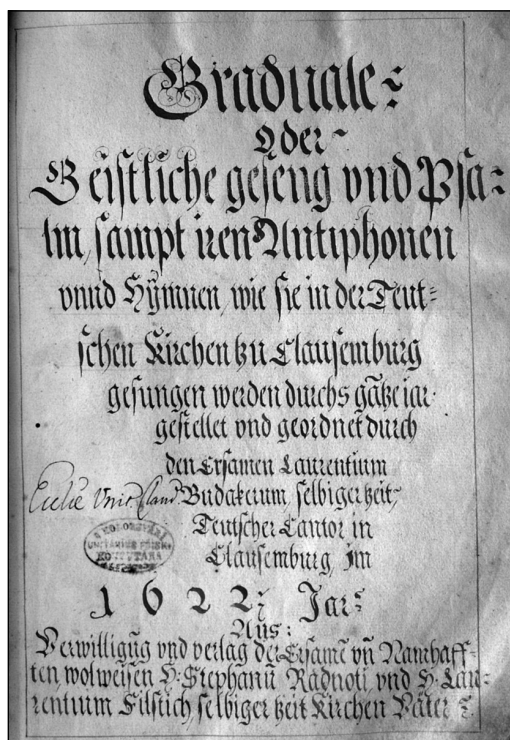 Graduale:
Oder
Geistliche geseng vnd Psa:
lm, sampt iren Antiphonen
vnnd Hÿmnen, wie sie in der Teut:
schen Kirchen zu Clausemburg
gesungen werden durchs gãtze iar
gestellet vnd geordnet durch
den Ersamen Laurentium
Eccliæ Unit. Claud. Budakerum selbiger zeit,
Teutscher Cantor in
Clausemburg, Im
A KOLOZSVÁRI
UNITÁRIUS FŐISK.
KÖNYVTÁRA
1622: Jar:
Aus:
Verwilligũg vnd verlag der Ersamẽ vñ Namhaff-
ten, wolweisen H: Stephanũ Radnoti, vnd H: Lau:
rentium Filstich, selbiger zeit Kirchen Väter